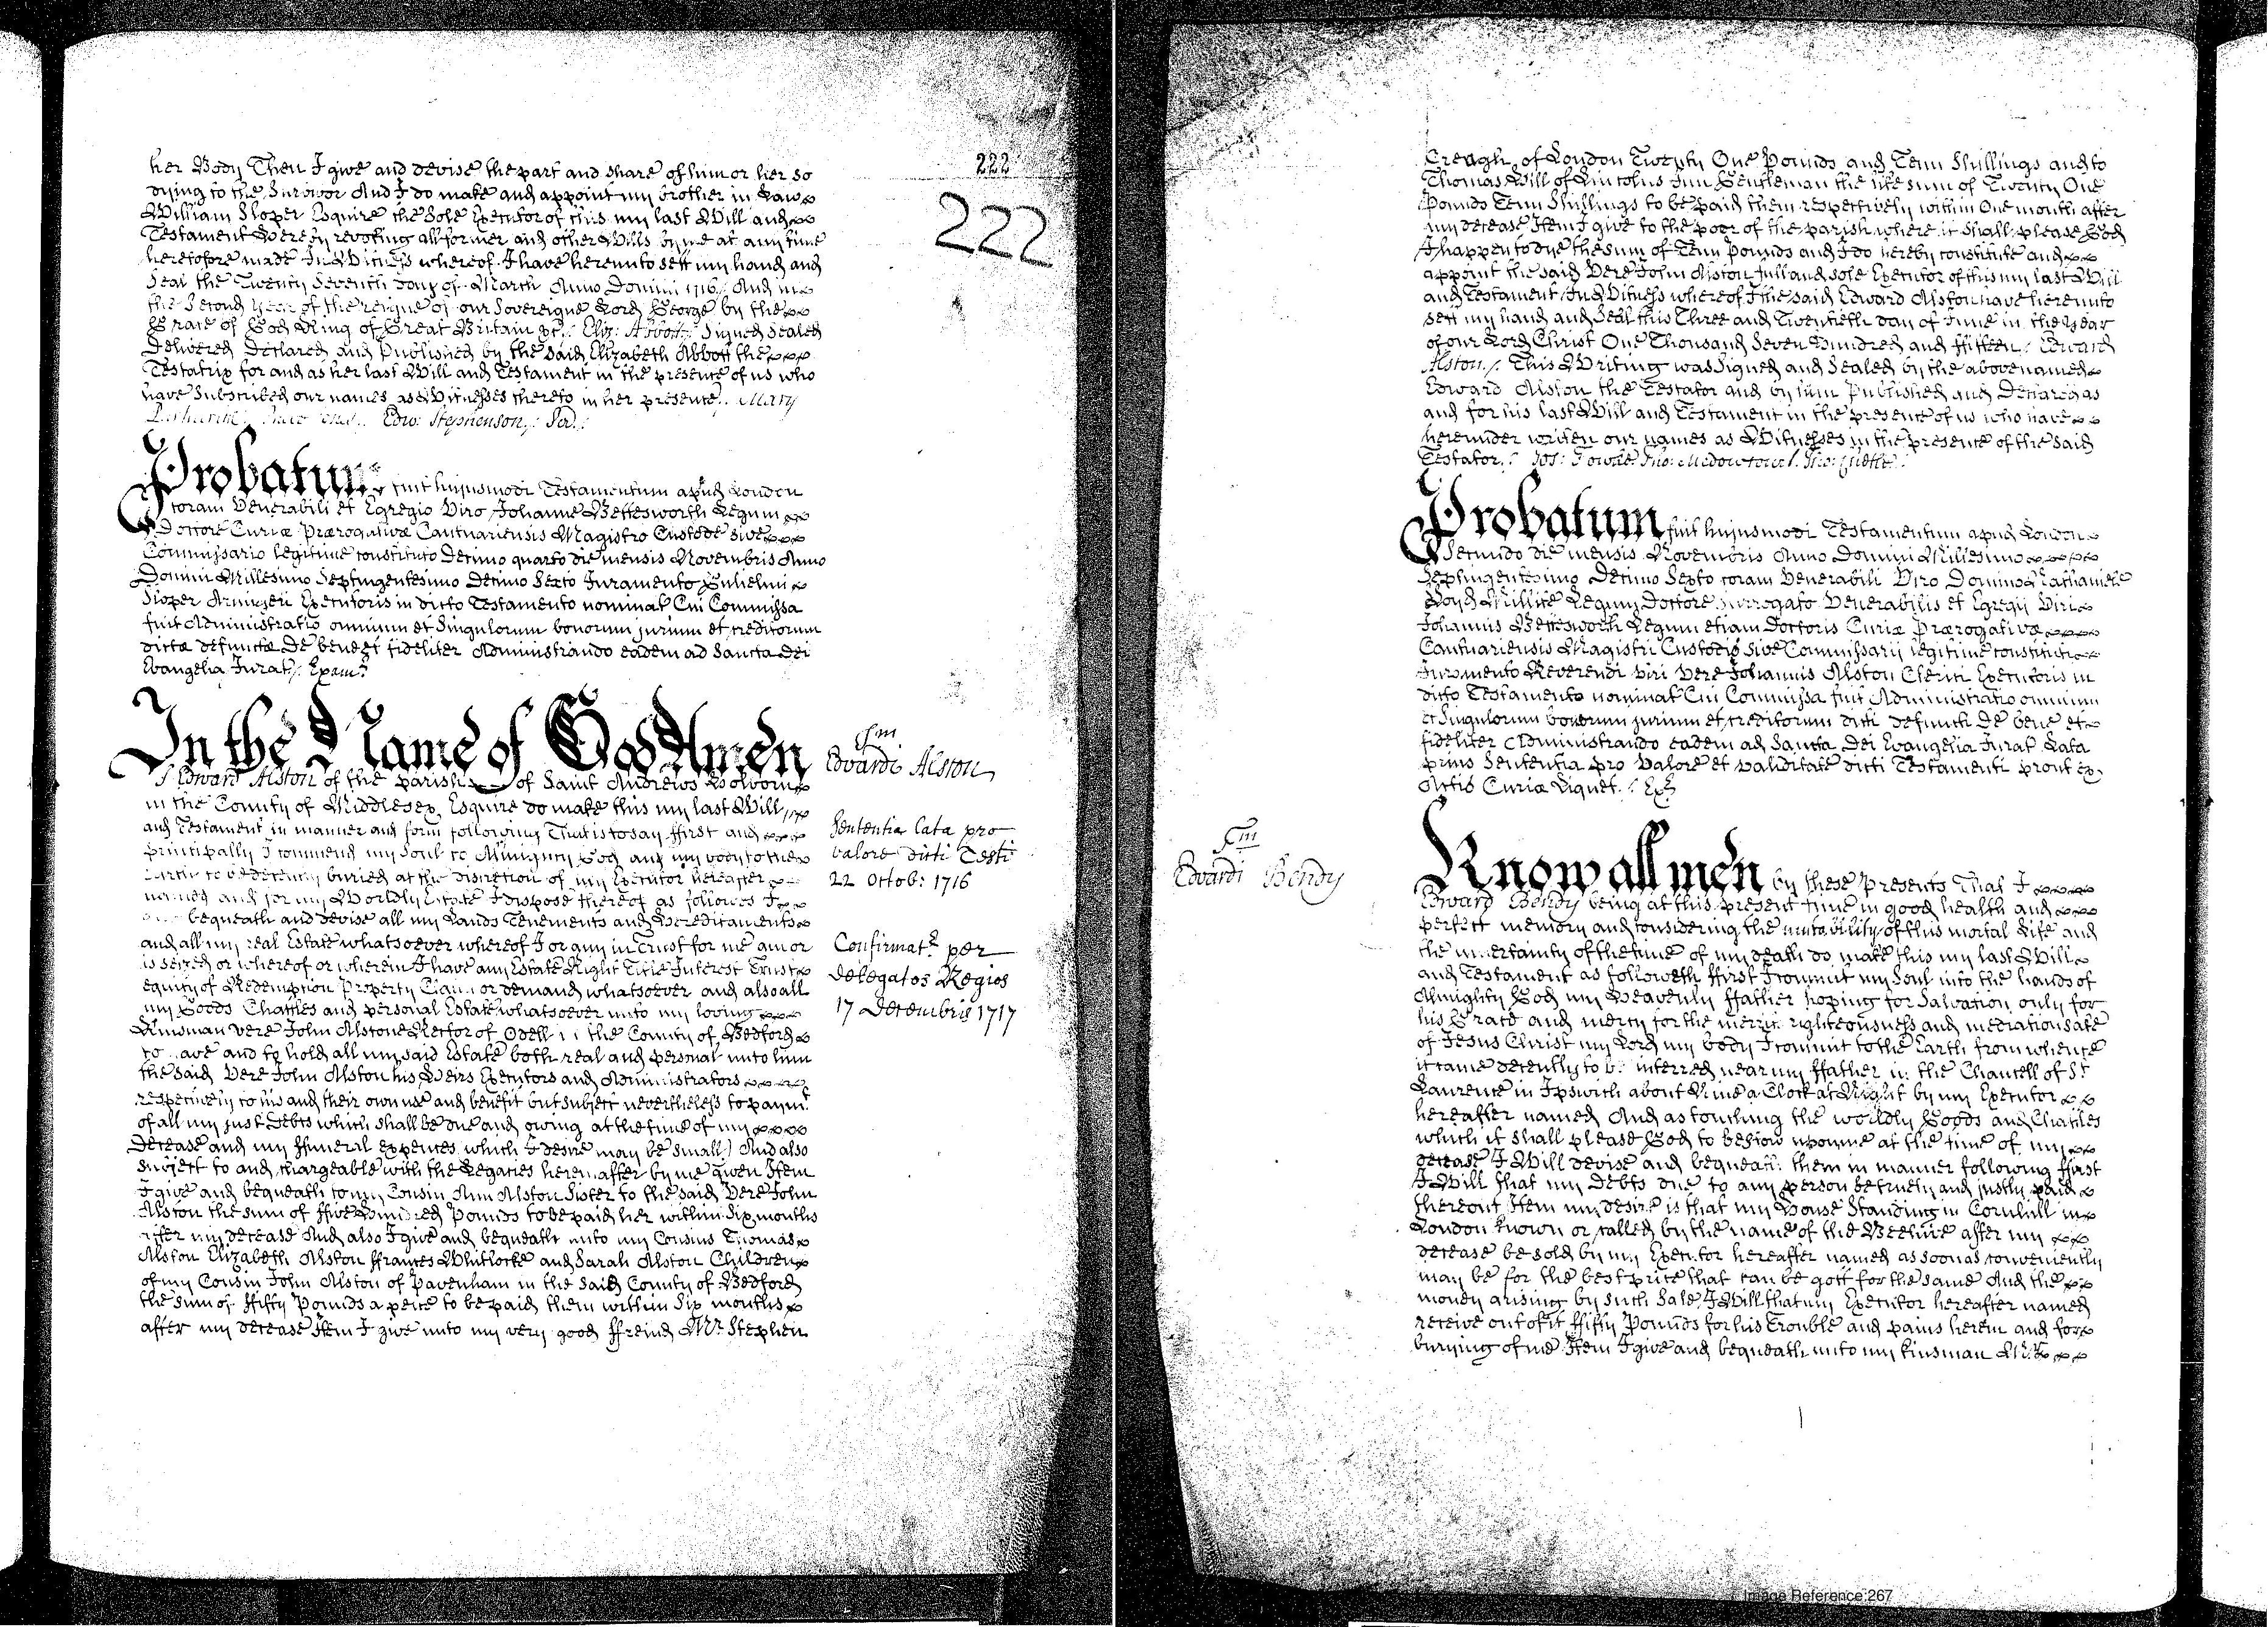 222
222
her Body Then I give and devise the part and share of him or her so
dying to the Survivor And I do make and appoint my brother in Law
William Sloper Esquire the Sole Executor of this my last Will and
Testament Hereby revoking all former and other Wills by me at any time
heretofore made In Witness whereof I have hereunto sett my hand and
Seal the Twenty Seventh day of March Anno Domini 1716 And in
the Second Year of the reigne of our Sovereigne Lord George by the
Grace of God King of Great Britain &c. Eliz: Abbott. Signed Sealed
Delivered Declared and Published by the said Elizabeth Abbott the
Testatrix for and as her last Will and Testament in the presence of us who
have Subscribed our names as Witnesses thereto in her presence. Mary
Edw: Stephenson
Probatum fuit hujusmodi Testamentum apud London
coram Venerabili et Egregio Viro Johanne Bettesworth Legum
Doctore Curiæ Prærogativæ Cantuariensis Magistro Custode sive
Commissario legitime constituto Decimo quarto die mensis Novembris Anno
Domini Millesimo Septingentesimo Decimo Sexto Juramento Gulielmi
Sloper Armigeri Executoris in dicto Testamento nominat Cui Commissa
fuit Administratio omnium et Singulorum bonorum jurium et creditorum
dictæ defunctæ De bene et fideliter Administrando eadem ad Sancta Dei
Evangelia Jurat. Exam:
In the Name of God Amen
I Edward Alston of the parish of Saint Andrews Holborn
in the County of Middlesex Esquire do make this my last Will
and Testament in manner and form following That is to say ffirst and
principally I commend my Soul to Almighty God and my body to the
Earth to be decently buried at the discretion of my Executor hereafter
named and for my Worldly Estate I dispose thereof as followes I
bequeath and devise all my Lands Tenements and Hereditaments
and all my real Estate whatsoever whereof I or any in Trust for me am or
is seized or whereof or wherein I have any Estate Right Title Interest Trust
equity of Redemption Property Claim or demand whatsoever and also all
my Goods Chattles and personal Estate whatsoever unto my loving
Kinsman Vere John Alstone Rector of Odell in the County of Bedford
to have and to hold all my said Estate both real and personal unto him
the said Vere John Alston his Heirs Executors and Administrators
respectively to his and their own use and benefit but subject nevertheless to paymt
of all my just Debts which shall be due and owing at the time of my
Decease and my ffuneral expences which I desire may be small) And also
Subject to and chargeable with the Legacies herein after by me given Item
I give and bequeath to my Cousin Ann Alston Sister to the said Vere John
Alston the sum of ffive Hundred Pounds to be paid her within Six months
after my decease And also I give and bequeath unto my Cousins Thomas
Alston Elizabeth Alston ffrances Whitlocke and Sarah Alston Children
of my Cousin John Alston of Pavenham in the said County of Bedford
the sum of ffifty Pounds a peice to be paid them within Six months
after my decease Item I give unto my very good ffreind Mr. Stephen
Tm
Edvardi Alston
Sententia lata pro
valore dicti Testi
22 Octob: 1716
Confirmat per
Delegatos Regios
17 Decembris 1717
Creagh of London Twenty One Pounds and Tenn Shillings and to
Thomas Will of Lincolns Inn Gentleman the like sum of Twenty One
Pounds Tenn Shillings to be paid them respectively within One month after
my decease Item I give to the poor of the parish where it shall please God
I happen to dye the sum of Tenn Pounds and I do hereby constitute and
appoint the said Vere John Alston full and sole Executor of this my last Will
and Testament In Witness whereof I the said Edward Alston have hereunto
sett my hand and Seal this Three and Twentieth day of June in the Year
of our Lord Christ One Thousand Seven Hundred and ffifteen. Edward
Alston. This Writing was Signed and Sealed by the abovenamed
Edward Alston the Testator and by him Published and Declared as
and for his last Will and Testament in the presence of us who have
hereunder written our names as Witnesses in the presence of the said
Testator.
Probatum fuit hujusmodi Testamentum apud London
Secundo die mensis Novembris Anno Domini Millesimo
Septingentesimo Decimo Sexto coram Venerabili Viro Domino Nathaniele
Loyd Millite Legum Doctore Surrogato Venerabilis et Egregij Viri
Johannis Bettesworth Legum etiam Doctoris Curiæ Prærogativæ
Cantuariensis Magistri Custodis sive Commissarij legitime constituti
Juramento Reverendi Viri Vere Johannis Alston Clerici Executoris in
dicto Testamento nominat Cui Commissa fuit Administratio omnium
et Singulorum bonorum jurium et creditorum dicti defuncti De bene et
fideliter Administrando eadem ad Sancta Dei Evangelia Jurat Lata
prius Sententia pro Valore et validitate dicti Testamenti prout ex
Actis Curiæ Liquet. Ex
Tm
Edvardi Bendy
Know all men by these Presents That I
Edward Bendy being at this present time in good health and
perfect memory and considering the mutability of this mortal Life and
the uncertainty of the time of my death do make this my last Will
and Testament as followeth ffirst I commit my Soul into the hands of
Almighty God my Heavenly ffather hoping for Salvation only for
his Grace and mercy for the merrit righteousness and mediation sake
of Jesus Christ my Lord my body I commit to the Earth from whence
it came decently to be interred near my ffather in the Chancell of St
Laurence in Ipswich about Nine a Clock at Night by my Executor
hereafter named And as touching the worldly Goods and Chattles
which it shall please God to bestow upon me at the time of my
decease I Will devise and bequeath them in manner following ffirst
I Will that my Debts due to any person be truely and justly paid
thereout Item my desire is that my House Standing in Cornhill in
London known or called by the name of the Beehive after my
decease be sold by my Executor hereafter named as soon as conveniently
may be for the best price that can be gott for the same And the
money arising by such Sale I Will that my Executor hereafter named
receive out of it ffifty Pounds for his Trouble and pains herein and for
burying of me Item I give and bequeath unto my kinsman Mr.
Image Reference:267